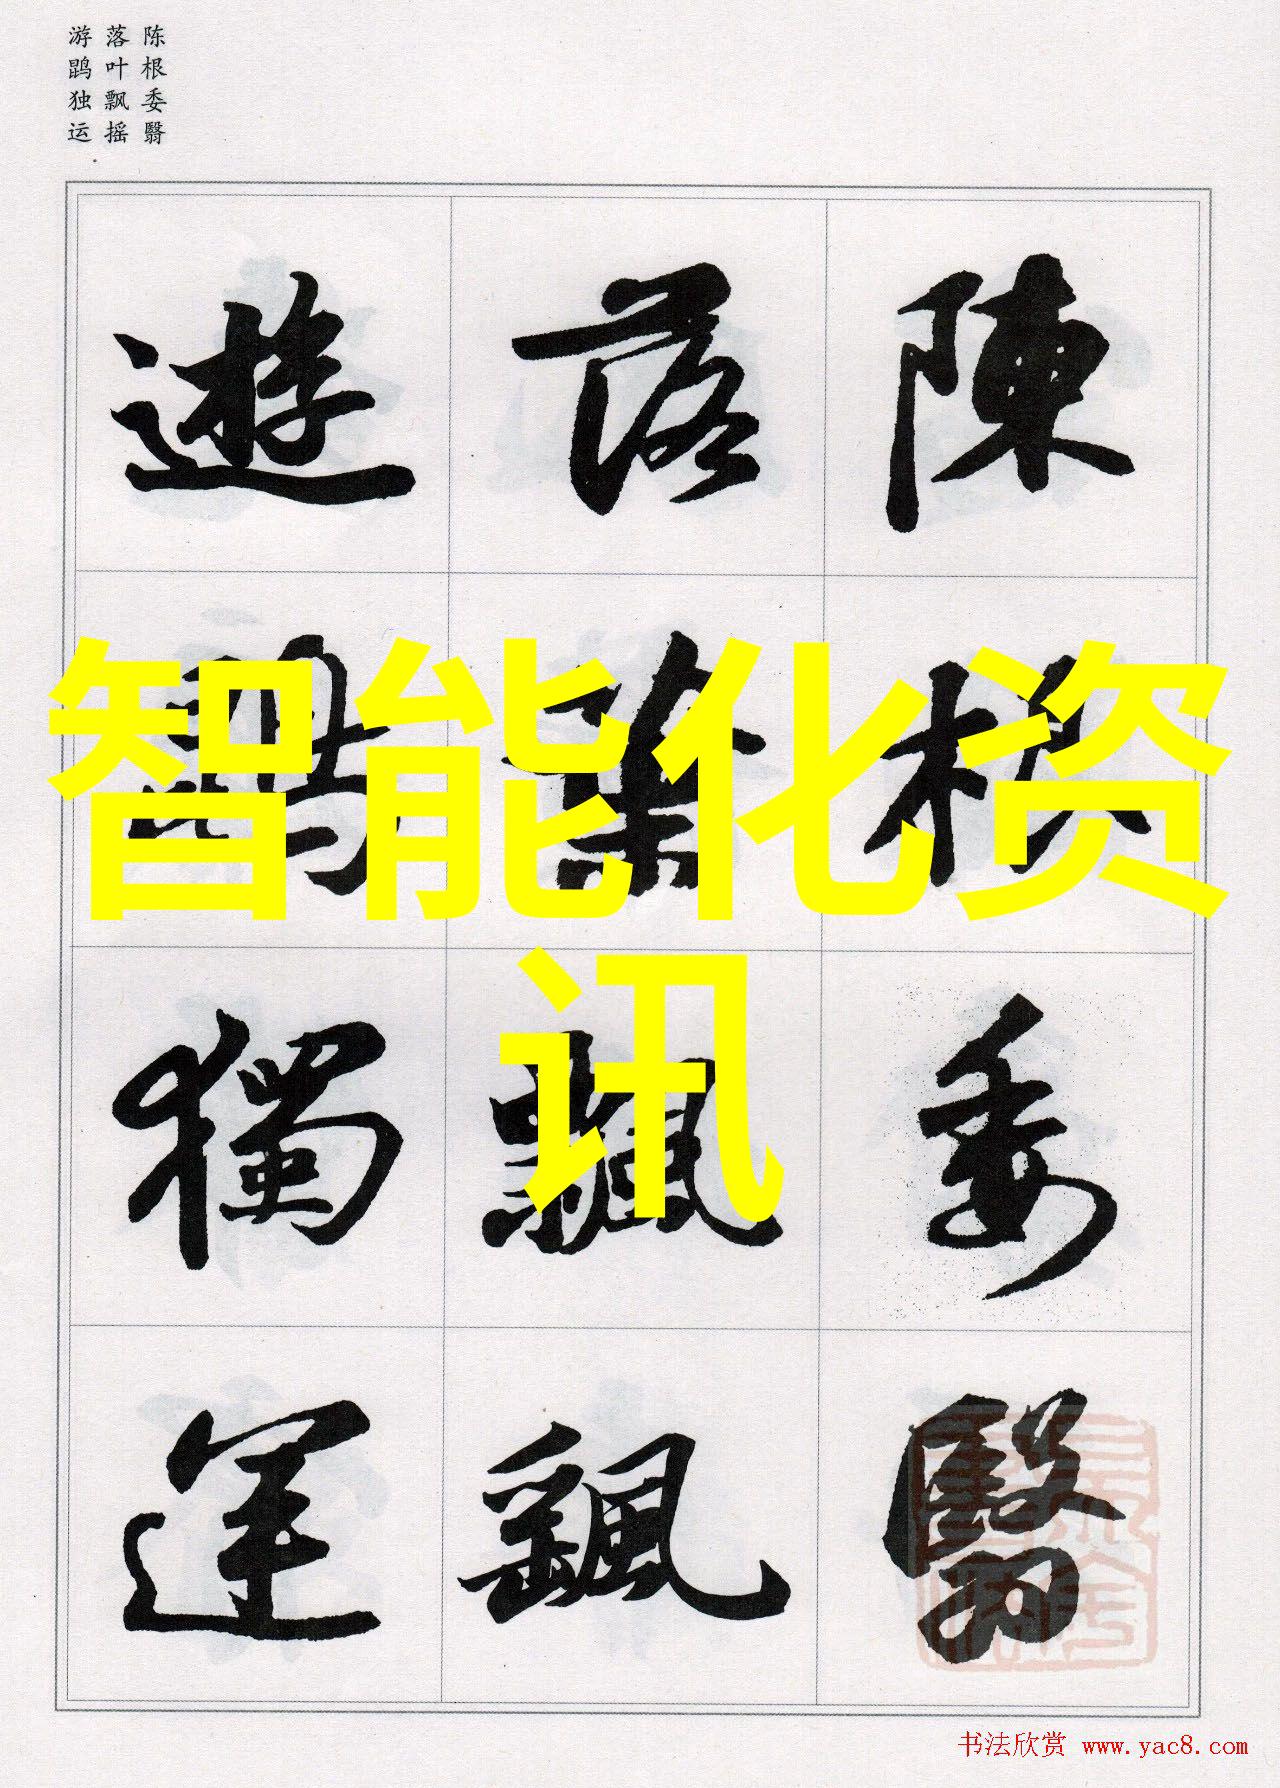 陈根委翳
落叶飘摇
游鹍独运
陳根委翳
落葉飄颻
遊鵾獨運
智能化资
讯
书法欣赏 www.yac8.com